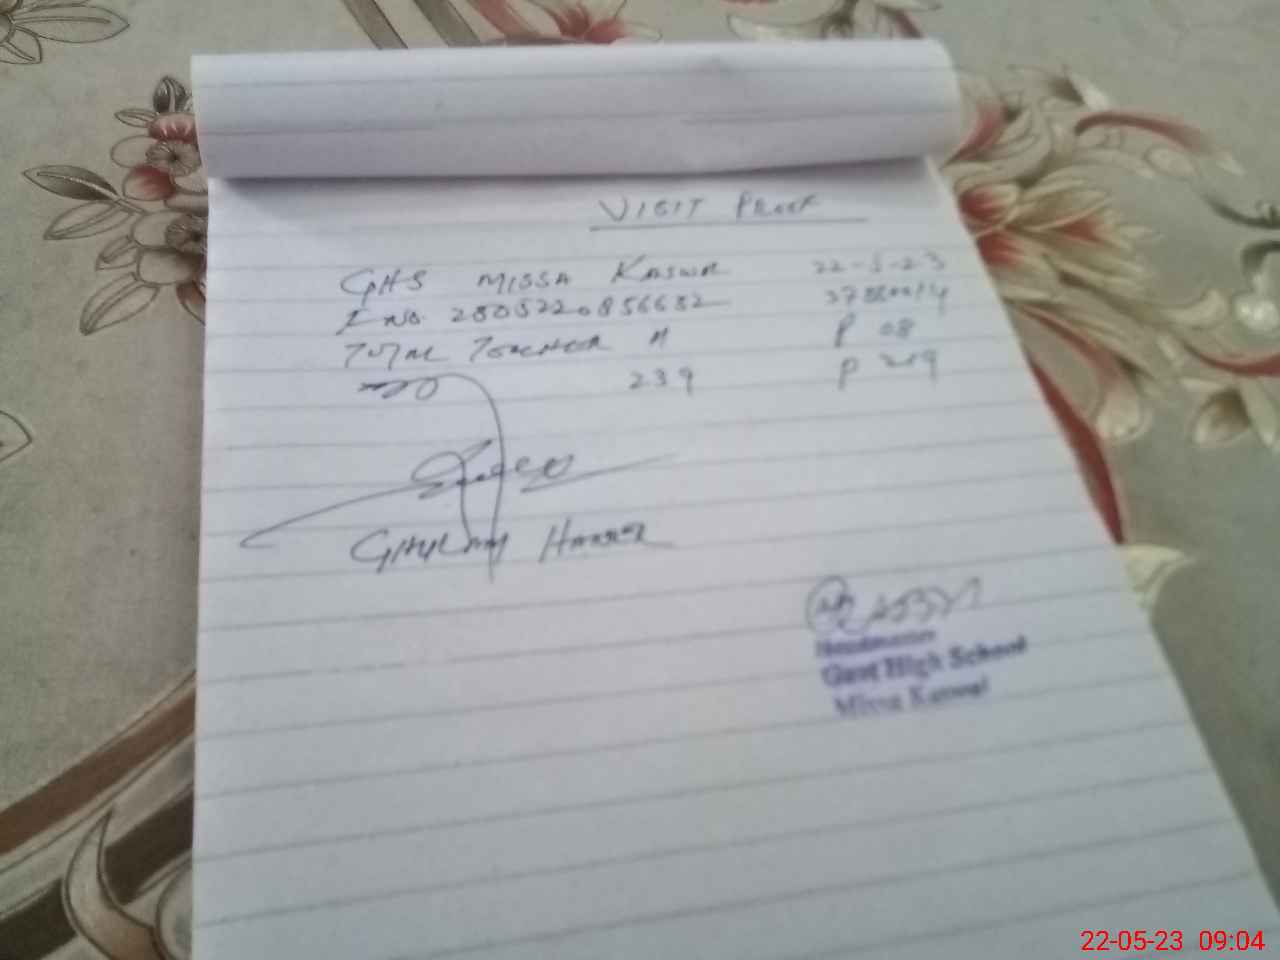 VISIT PROOF
GHS MISSA KASWAL 22-5-23
I NO. 2505220856632
TOTAL TEACHER 11 P 08
239 P 219
GHULAM
Headmaster
Govt High School
Missa Kaswal
22-05-23 09:04